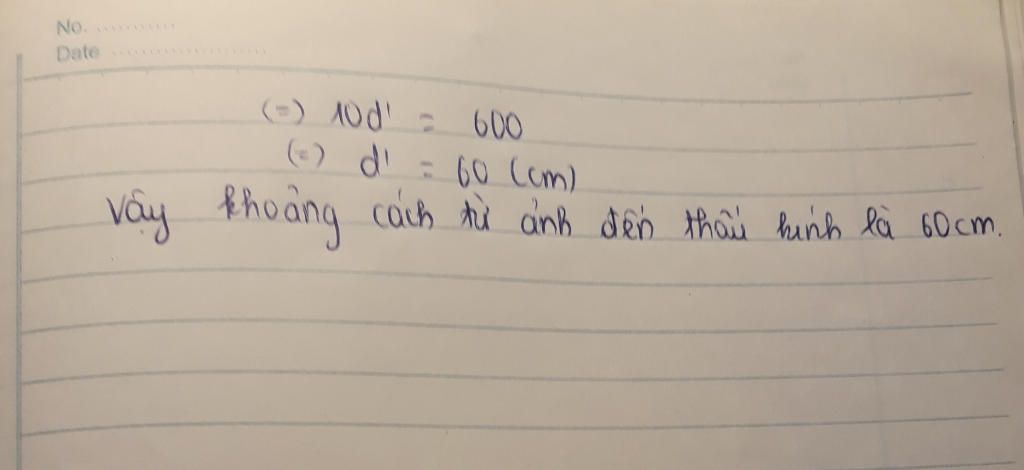 No. ............
Date ......................
(=) 10d' = 600
(=) d' = 60 (cm)
Vậy khoảng cách từ ảnh đến thấu kính là 60cm.